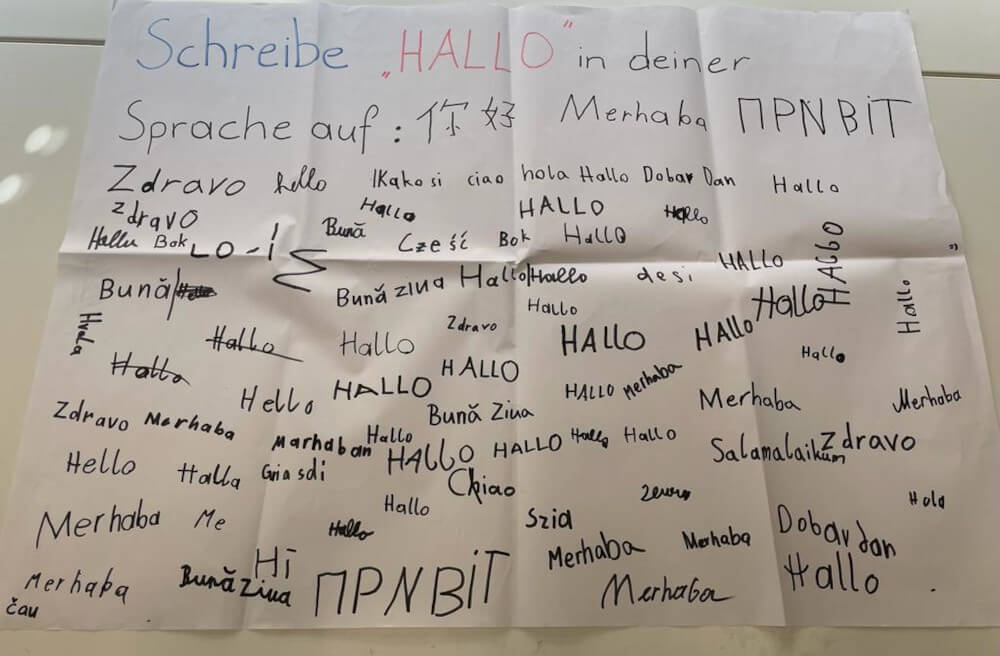 Schreibe „HALLO" in deiner
Sprache auf: 你好 Merhaba ПРNВІТ
Zdravo hello Kako si ciao hola Hallo Dobar Dan Hallo
Zdravo Hallo HALLO Hallo
Hallu Bok LO-i Bună Cześć Bok Hallo HALLO HALLO
Bună Bună ziua Hallo/Hallo desi
Hallo Hallo Hallo
Hvala Hallo Hallo Zdravo HALLO HALLO Hallo
Hallo Hello HALLO HALLO HALLO Merhaba Merhaba Merhaba
Zdravo Merhaba Marhaban Hallo Bună Ziua
HALLO HALLO Hallo Hallo Salamalaikum Zdravo
Hello Halla Griasdi Chiao
Merhaba Me Hallo Szia Hola
Hallo Merhaba Merhaba Dobar dan
Merhaba Bună Ziua Hi ПРNВІТ Merhaba Hallo
čau